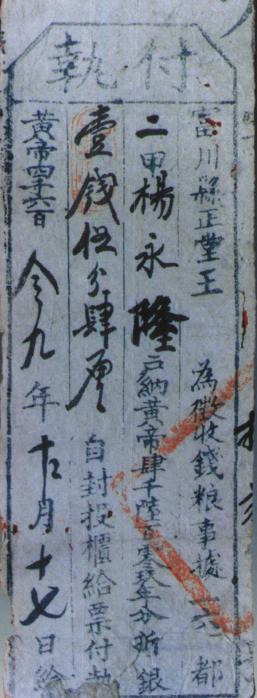 付執
富川縣正堂王 為徵收錢粮事據 一六 都
二甲楊永隆戶納黃帝肆千陸百零玖年分折銀
壹錢伍分肆厘 自封投櫃給票付執
黃帝四千六百令九年十二月十七日給